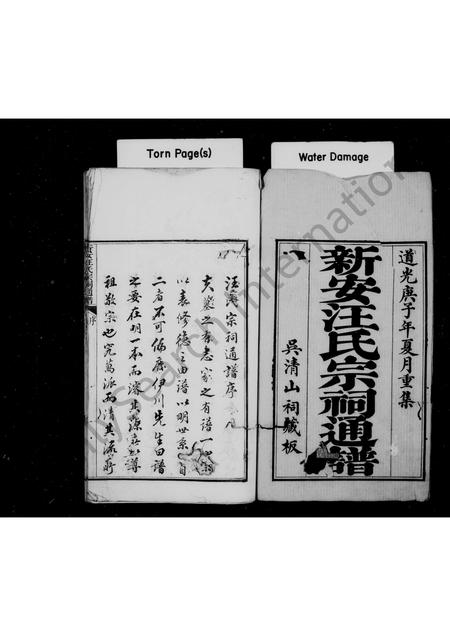 Torn Page(s)
Water Damage
道光庚子年夏月重集
新安汪氏宗祠通譜
吳清山祠藏板
汪氏宗祠通譜序
夫墓之有志家之有譜一以
以表修德之由譜以明世系
二者不可偏廢伊川先生曰譜
之要在明一本而濬其源
祖敬宗也究萬派而清其流
序
FamilySearch International